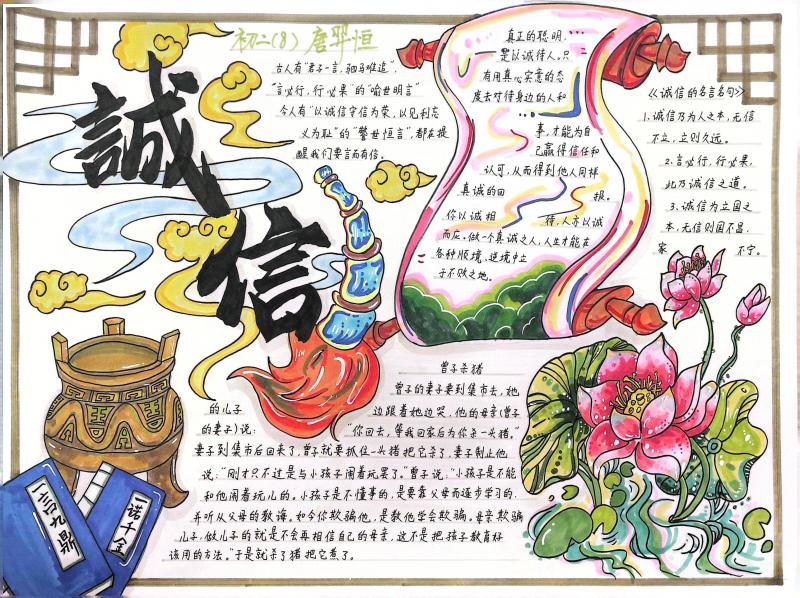 初二(8) 唐羿恒
誠信
古人有“君子一言,驷马难追”,
“言必行,行必果”的“喻世明言”
今人有“以诚信守信为荣,以见利忘
义为耻”的“警世恒言”,都在提
醒我们要言而有信。
真正的聪明...
是以诚待人。只
有用真心实意的态
度去对待身边的人和
事,才能为自
己赢得信任和
认可,从而得到他人同样
真诚的回报。
你以诚相待,人亦以诚
而应。做一个真诚之人,人生才能在
各种顺境、逆境中立
于不败之地。
《诚信的名言名句》
1.诚信乃为人之本,无信
不立,立则久远。
2.言必行,行必果,
此乃诚信之道。
3.诚信为立国之
本,无信则国不昌,
家不宁。
曾子杀猪
曾子的妻子要到集市去,她
的儿子边跟着她边哭,他的母亲(曾子
的妻子)说:“你回去,等我回家后为你杀一头猪。”
妻子到集市后回来了,曾子就要抓住一头猪把它杀了,妻子制止他
说:“刚才只不过是与小孩子闹着玩罢了。”曾子说:“小孩子是不能
和他闹着玩儿的。小孩子是不懂事的,是要靠父母而逐步学习的,
并听从父母的教诲。如今你欺骗他,是教他学会欺骗。母亲欺骗
儿子,做儿子的就是不会再相信自己的母亲,这不是把孩子教育好
该用的方法。”于是就杀了猪把它煮了。
一言九鼎
一诺千金